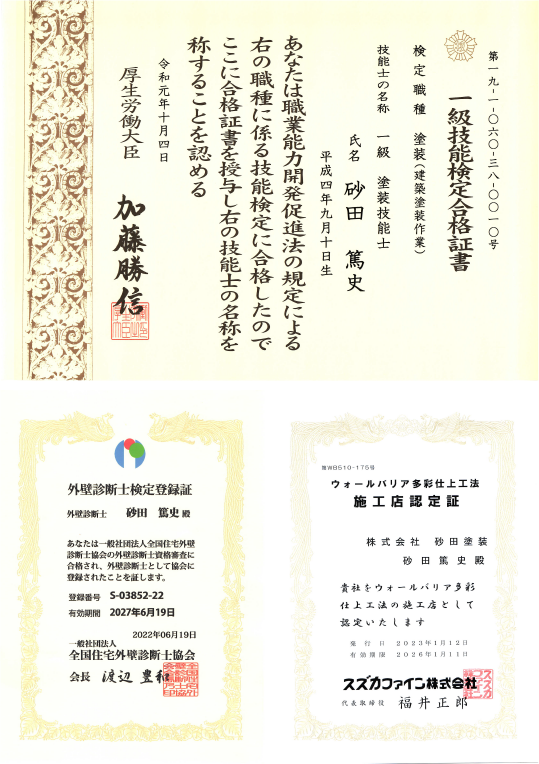 第一九-一-〇六〇-三八-〇〇一〇号
一級技能検定合格証書
検定職種 塗装(建築塗装作業)
技能士の名称 一級 塗装技能士
氏名 砂田 篤史
平成四年九月十日生
あなたは職業能力開発促進法の規定による
右の職種に係る技能検定に合格したので
ここに合格証書を授与し右の技能士の名称を
称することを認める
令和元年十月四日
厚生労働大臣 加藤勝信
外壁診断士検定登録証
外壁診断士 砂田 篤史 殿
あなたは一般社団法人全国住宅外壁
診断士協会の外壁診断士資格審査に
合格され、外壁診断士として協会に
登録されたことを証します。
登録番号 S-03852-22
有効期間 2027年6月19日
2022年06月19日
一般社団法人
全国住宅外壁診断士協会
会長 渡辺 豊和
第WB510-175号
ウォールバリア多彩仕上工法
施工店認定証
株式会社 砂田塗装
砂田篤史殿
貴社をウォールバリア多彩
仕上工法の施工店として
認定いたします
発行日 2023年1月12日
有効期限 2026年1月11日
スズカファイン株式会社
代表取締役 福井正郎